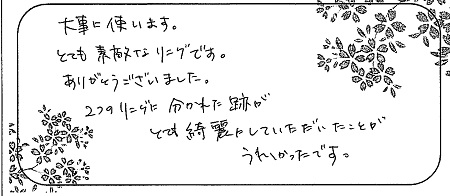 大事に使います。
とても素敵なリングです。
ありがとうございました。
2つのリングに分かれた跡が
とても綺麗にしていただいたことが
うれしかったです。